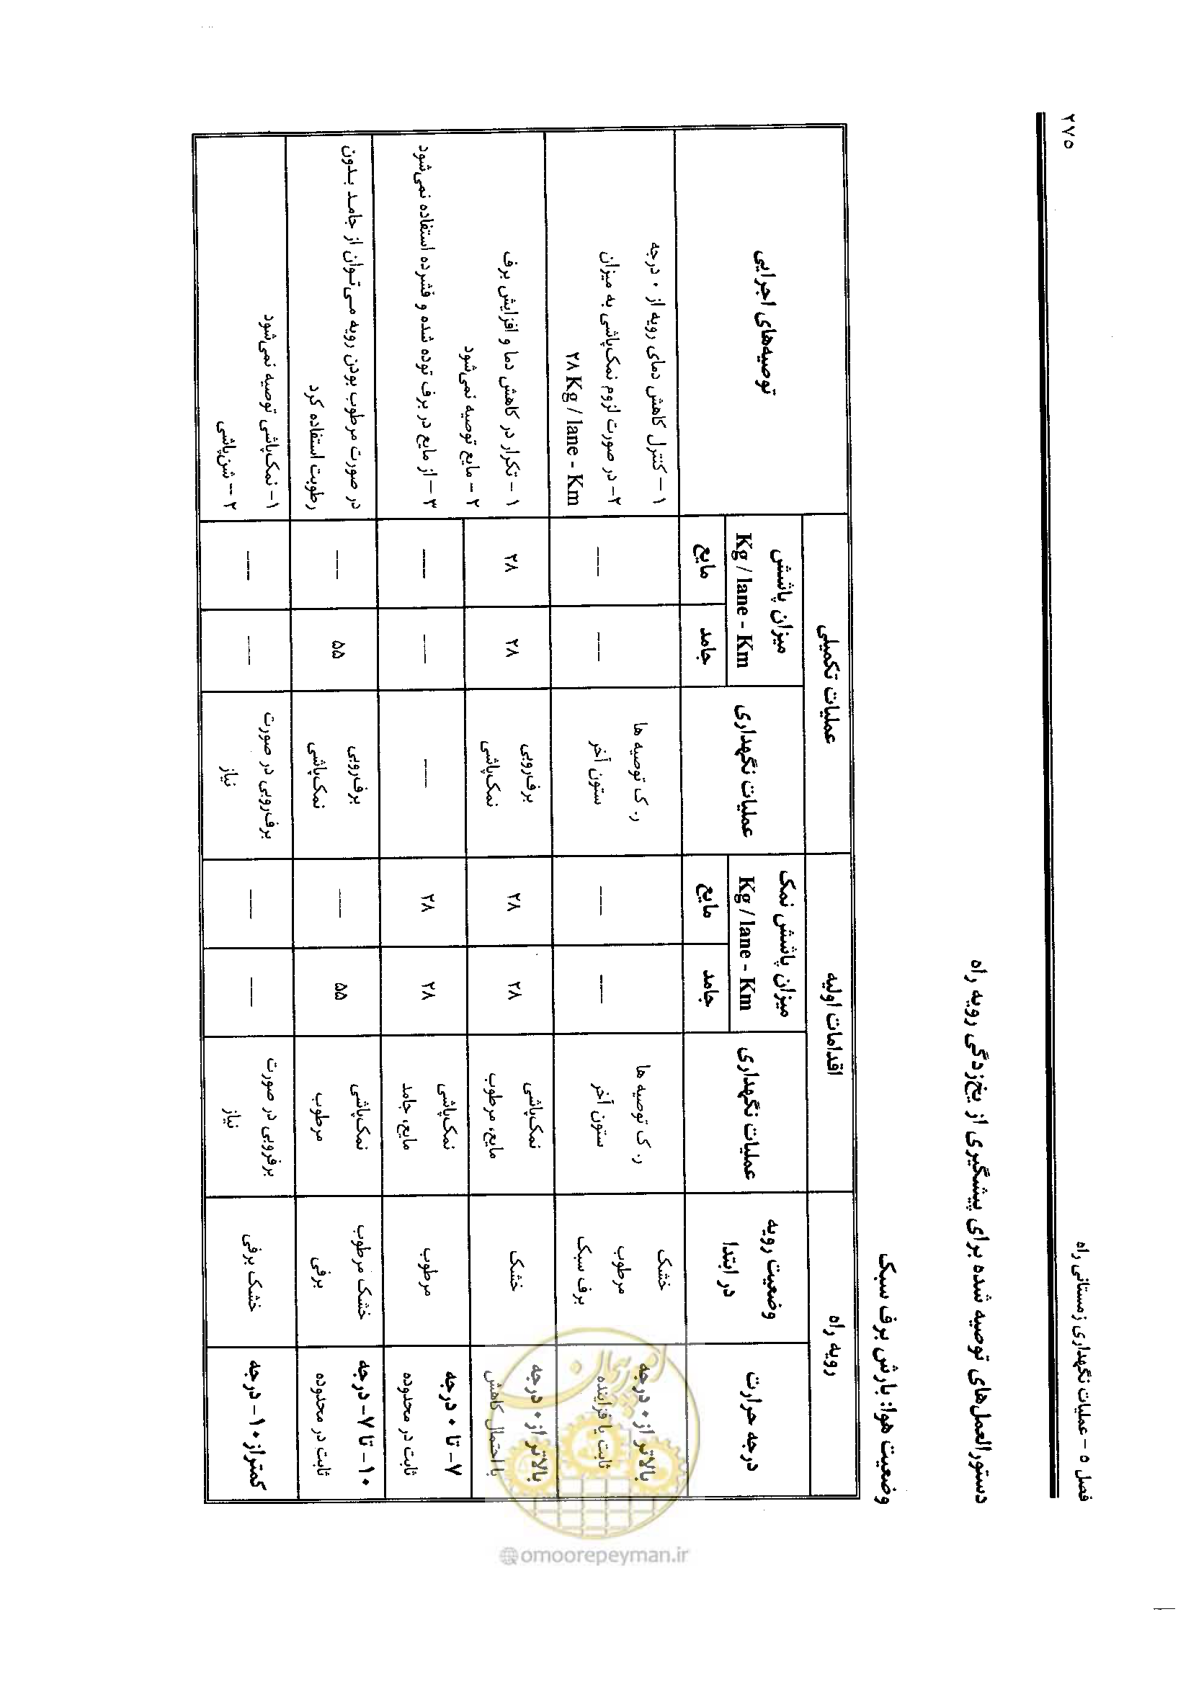 فصل ۵ – عملیات نگهداری زمستانی راه
۲۷۵
دستورالعمل‌های توصیه شده برای پیشگیری از یخ‌زدگی رویه راه
وضعیت هوا: بارش برف سبک
رویه راه
اقدامات اولیه
عملیات تکمیلی
توصیه‌های اجرایی
درجه حرارت
وضعیت رویه
در ابتدا
عملیات نگهداری
میزان پاشش نمک
Kg / lane - Km
جامد
مایع
عملیات نگهداری
میزان پاشش
Kg / lane - Km
جامد
مایع
بالاتر از ۰ درجه
ثابت یا فزاینده
خشک
مرطوب
برف سبک
ر. ک توصیه ها
ستون آخر
---
---
ر. ک توصیه ها
ستون آخر
---
---
۱ – کنترل کاهش دمای رویه از ۰ درجه
۲- در صورت لزوم نمک‌پاشی به میزان
۲۸ Kg / lane - Km
بالاتر از ۰ درجه
با احتمال کاهش
خشک
نمک‌پاشی
مایع، مرطوب
۲۸
۲۸
برف‌روبی
نمک‌پاشی
۲۸
۲۸
۱ – تکرار در کاهش دما و افزایش برف
۲ – مایع توصیه نمی‌شود
۳ – از مایع در برف توده شده و فشرده استفاده نمی‌شود
۷- تا ۰ درجه
ثابت در محدوده
مرطوب
نمک‌پاشی
مایع، جامد
۲۸
۲۸
---
---
---
۱۰- تا ۷- درجه
ثابت در محدوده
خشک مرطوب
برفی
نمک‌پاشی
مرطوب
۵۵
---
برف‌روبی
نمک‌پاشی
۵۵
---
در صورت مرطوب بودن رویه می‌توان از جامد بدون
رطوبت استفاده کرد
کمتر از ۱۰- درجه
خشک برفی
برفروبی در صورت
نیاز
---
---
برف‌روبی در صورت
نیاز
---
---
۱- نمک‌پاشی توصیه نمی‌شود
۲ – شن‌پاشی
امور پیمان
@omoorepeyman.ir